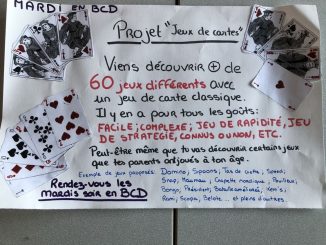 MARDI EN BCD
Projet "Jeux de cartes"
Viens découvrir + de
60 jeux différents avec
un jeu de carte classique.
Il y en a pour tous les goûts:
FACILE; COMPLEXE; JEU DE RAPIDITÉ, JEU
DE STRATÉGIE, CONNUS OU NON, ETC.
Peut-être même que tu vas découvrir certains jeux
que tes parents ont joués à ton âge.
Exemple de jeux proposés: Domino, Spoons, Pas de carte, Speed,
Snap, Maumau, Crapette nordique, Pouilleux,
Bongo, Président, Bataille améliorée, Kem's,
Rami, Scopa, Belote... et pleins d'autres
Rendez-vous les
mardis soir en BCD